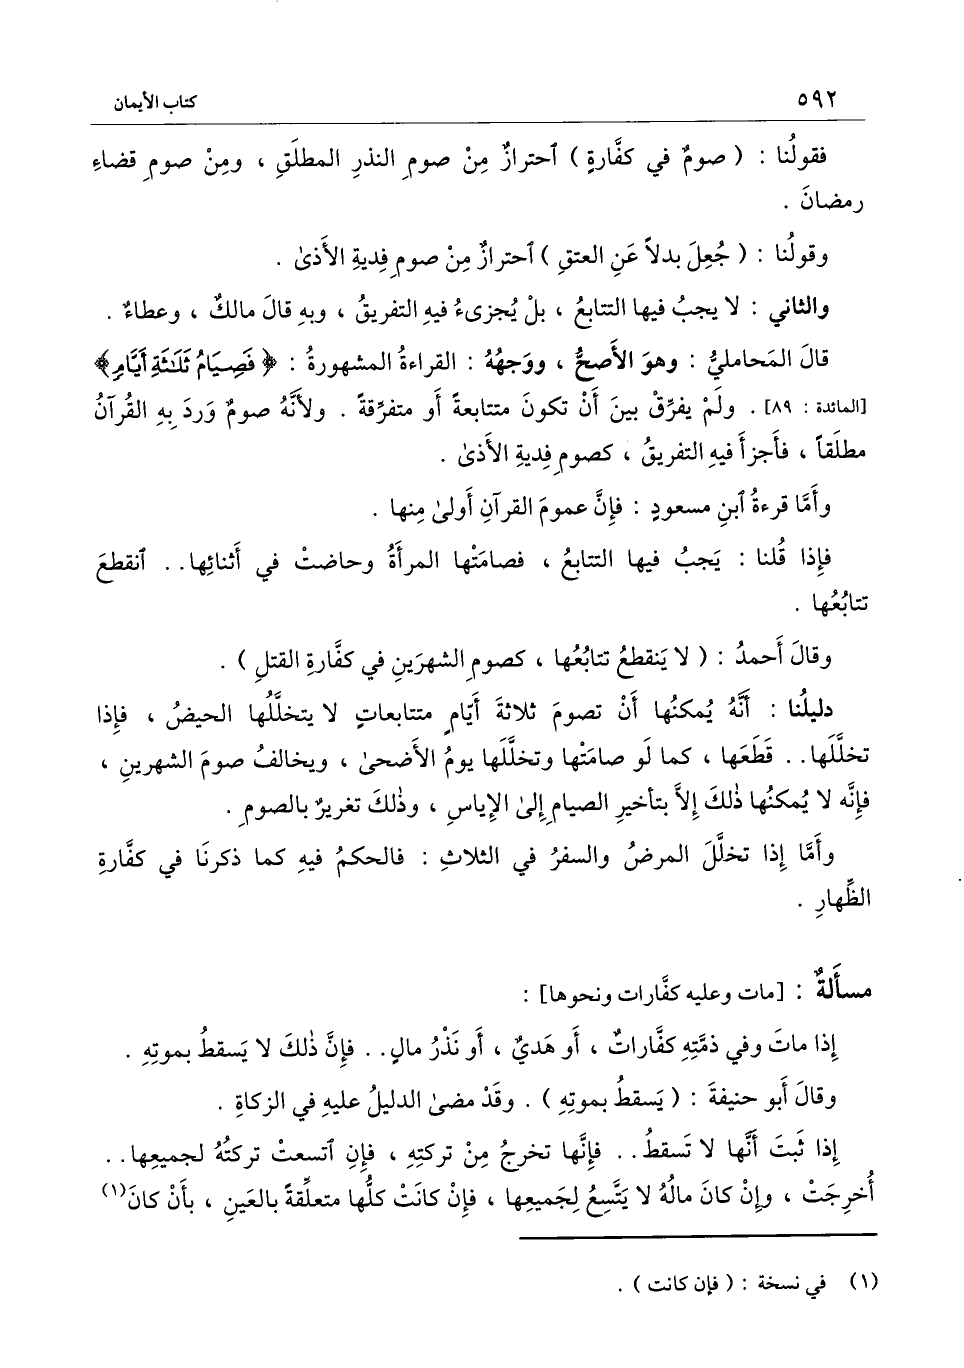 ٥٩٢ كتاب الأيمان
فقولُنا : ( صومٌ في كفَّارةٍ ) ٱحترازٌ مِنْ صومِ النذرِ المطلَقِ ، ومِنْ صومِ قضاءِ
رمضانَ .
وقولُنا : ( جُعِلَ بدلاً عَنِ العتقِ ) ٱحترازٌ مِنْ صومِ فِديةِ الأَذىٰ .
والثاني : لا يجبُ فيها التتابعُ ، بلْ يُجزىءُ فيهِ التفريقُ ، وبهِ قالَ مالكٌ ، وعطاءٌ .
قالَ المَحامليُّ : وهوَ الأَصحُّ ، ووَجهُهُ : القراءةُ المشهورةُ : ﴿ فَصِيَامُ ثَلَٰثَةِ أَيَّامٍ ﴾
[المائدة : ٨٩] . ولَمْ يفرِّقْ بينَ أَنْ تكونَ متتابعةً أَو متفرِّقةً . ولأَنَّهُ صومٌ وَردَ بِهِ القُرآنُ
مطلَقاً ، فأَجزأَ فيهِ التفريقُ ، كصومِ فِديةِ الأَذىٰ .
وأَمَّا قرءةُ ٱبنِ مسعودٍ : فإِنَّ عمومَ القرآنِ أَولىٰ مِنها .
فإِذا قُلنا : يَجبُ فيها التتابعُ ، فصامَتْها المرأَةُ وحاضتْ في أَثنائِها . . ٱنقطعَ
تتابُعُها .
وقالَ أَحمدُ : ( لا يَنقطعُ تتابُعُها ، كصومِ الشهرَينِ في كفَّارةِ القتلِ ) .
دليلُنا : أَنَّهُ يُمكنُها أَنْ تصومَ ثلاثةَ أَيَّامٍ متتابعاتٍ لا يتخلَّلُها الحيضُ ، فإِذا
تخلَّلَها . . قَطَعَها ، كما لَو صامَتْها وتخلَّلَها يومُ الأَضحىٰ ، ويخالفُ صومَ الشهرينِ ،
فإِنَّه لا يُمكنُها ذٰلكَ إِلاَّ بتأخيرِ الصيامِ إِلىٰ الإِياسِ ، وذٰلكَ تغريرٌ بالصومِ .
وأَمَّا إِذا تخلَّلَ المرضُ والسفرُ في الثلاثِ : فالحكمُ فيهِ كما ذكرنَا في كفَّارةِ
الظِّهارِ .
مسأَلةٌ : [مات وعليه كفَّارات ونحوها] :
إِذا ماتَ وفي ذمَّتِهِ كفَّاراتٌ ، أَو هَديٌ ، أَو نَذْرُ مالٍ . . فإِنَّ ذٰلكَ لا يَسقطُ بموتِهِ .
وقالَ أَبو حنيفةَ : ( يَسقطُ بموتِهِ ) . وقَدْ مضىٰ الدليلُ عليهِ في الزكاةِ .
إِذا ثَبتَ أَنَّها لا تَسقطُ . . فإِنَّها تخرجُ مِنْ تركتِهِ ، فإِنِ ٱتسعتْ تركتُهُ لجميعِها . .
أُخرِجَتْ ، وإِنْ كانَ مالُهُ لا يَتَّسِعُ لِجَميعِها ، فإِنْ كانَتْ كلُّها متعلِّقةً بالعَينِ ، بأَنْ كانَ(١)
(١) في نسخة : ( فإن كانت ) .